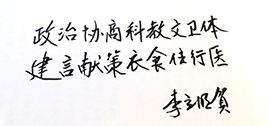 政治协商科教文卫体
建言献策衣食住行医
李立明贺